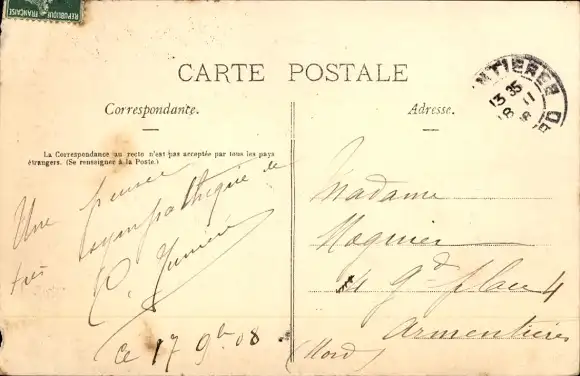 REPUBLIQUE FRANÇAISE
CARTE POSTALE
Correspondance.
Adresse.
La Correspondance au recto n'est pas acceptée par tous les pays
étrangers. (Se renseigner à la Poste.)
NTIERES
13 35
18 11
Une pensée
très sympathique de
Ce 17 9bre 08
Madame
Maquier
4 Gde place 4
Armentières
(Nord)